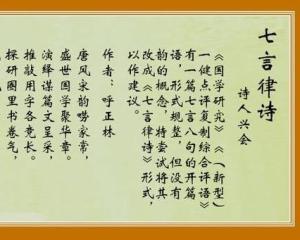 七言律诗
诗人兴会
《国学研究》《（新型）
一健点评复制综合评语》
有一篇七言八句的开篇
语，形式规整，但没有
韵的概念，特尝试将其
改成《七言律诗》形式，
以作建议。
作者：呼正林
唐风宋韵唠家常，
盛世国学聚华章。
演绎谋篇文呈采，
推敲用字各竞长。
探研圈里书卷气，